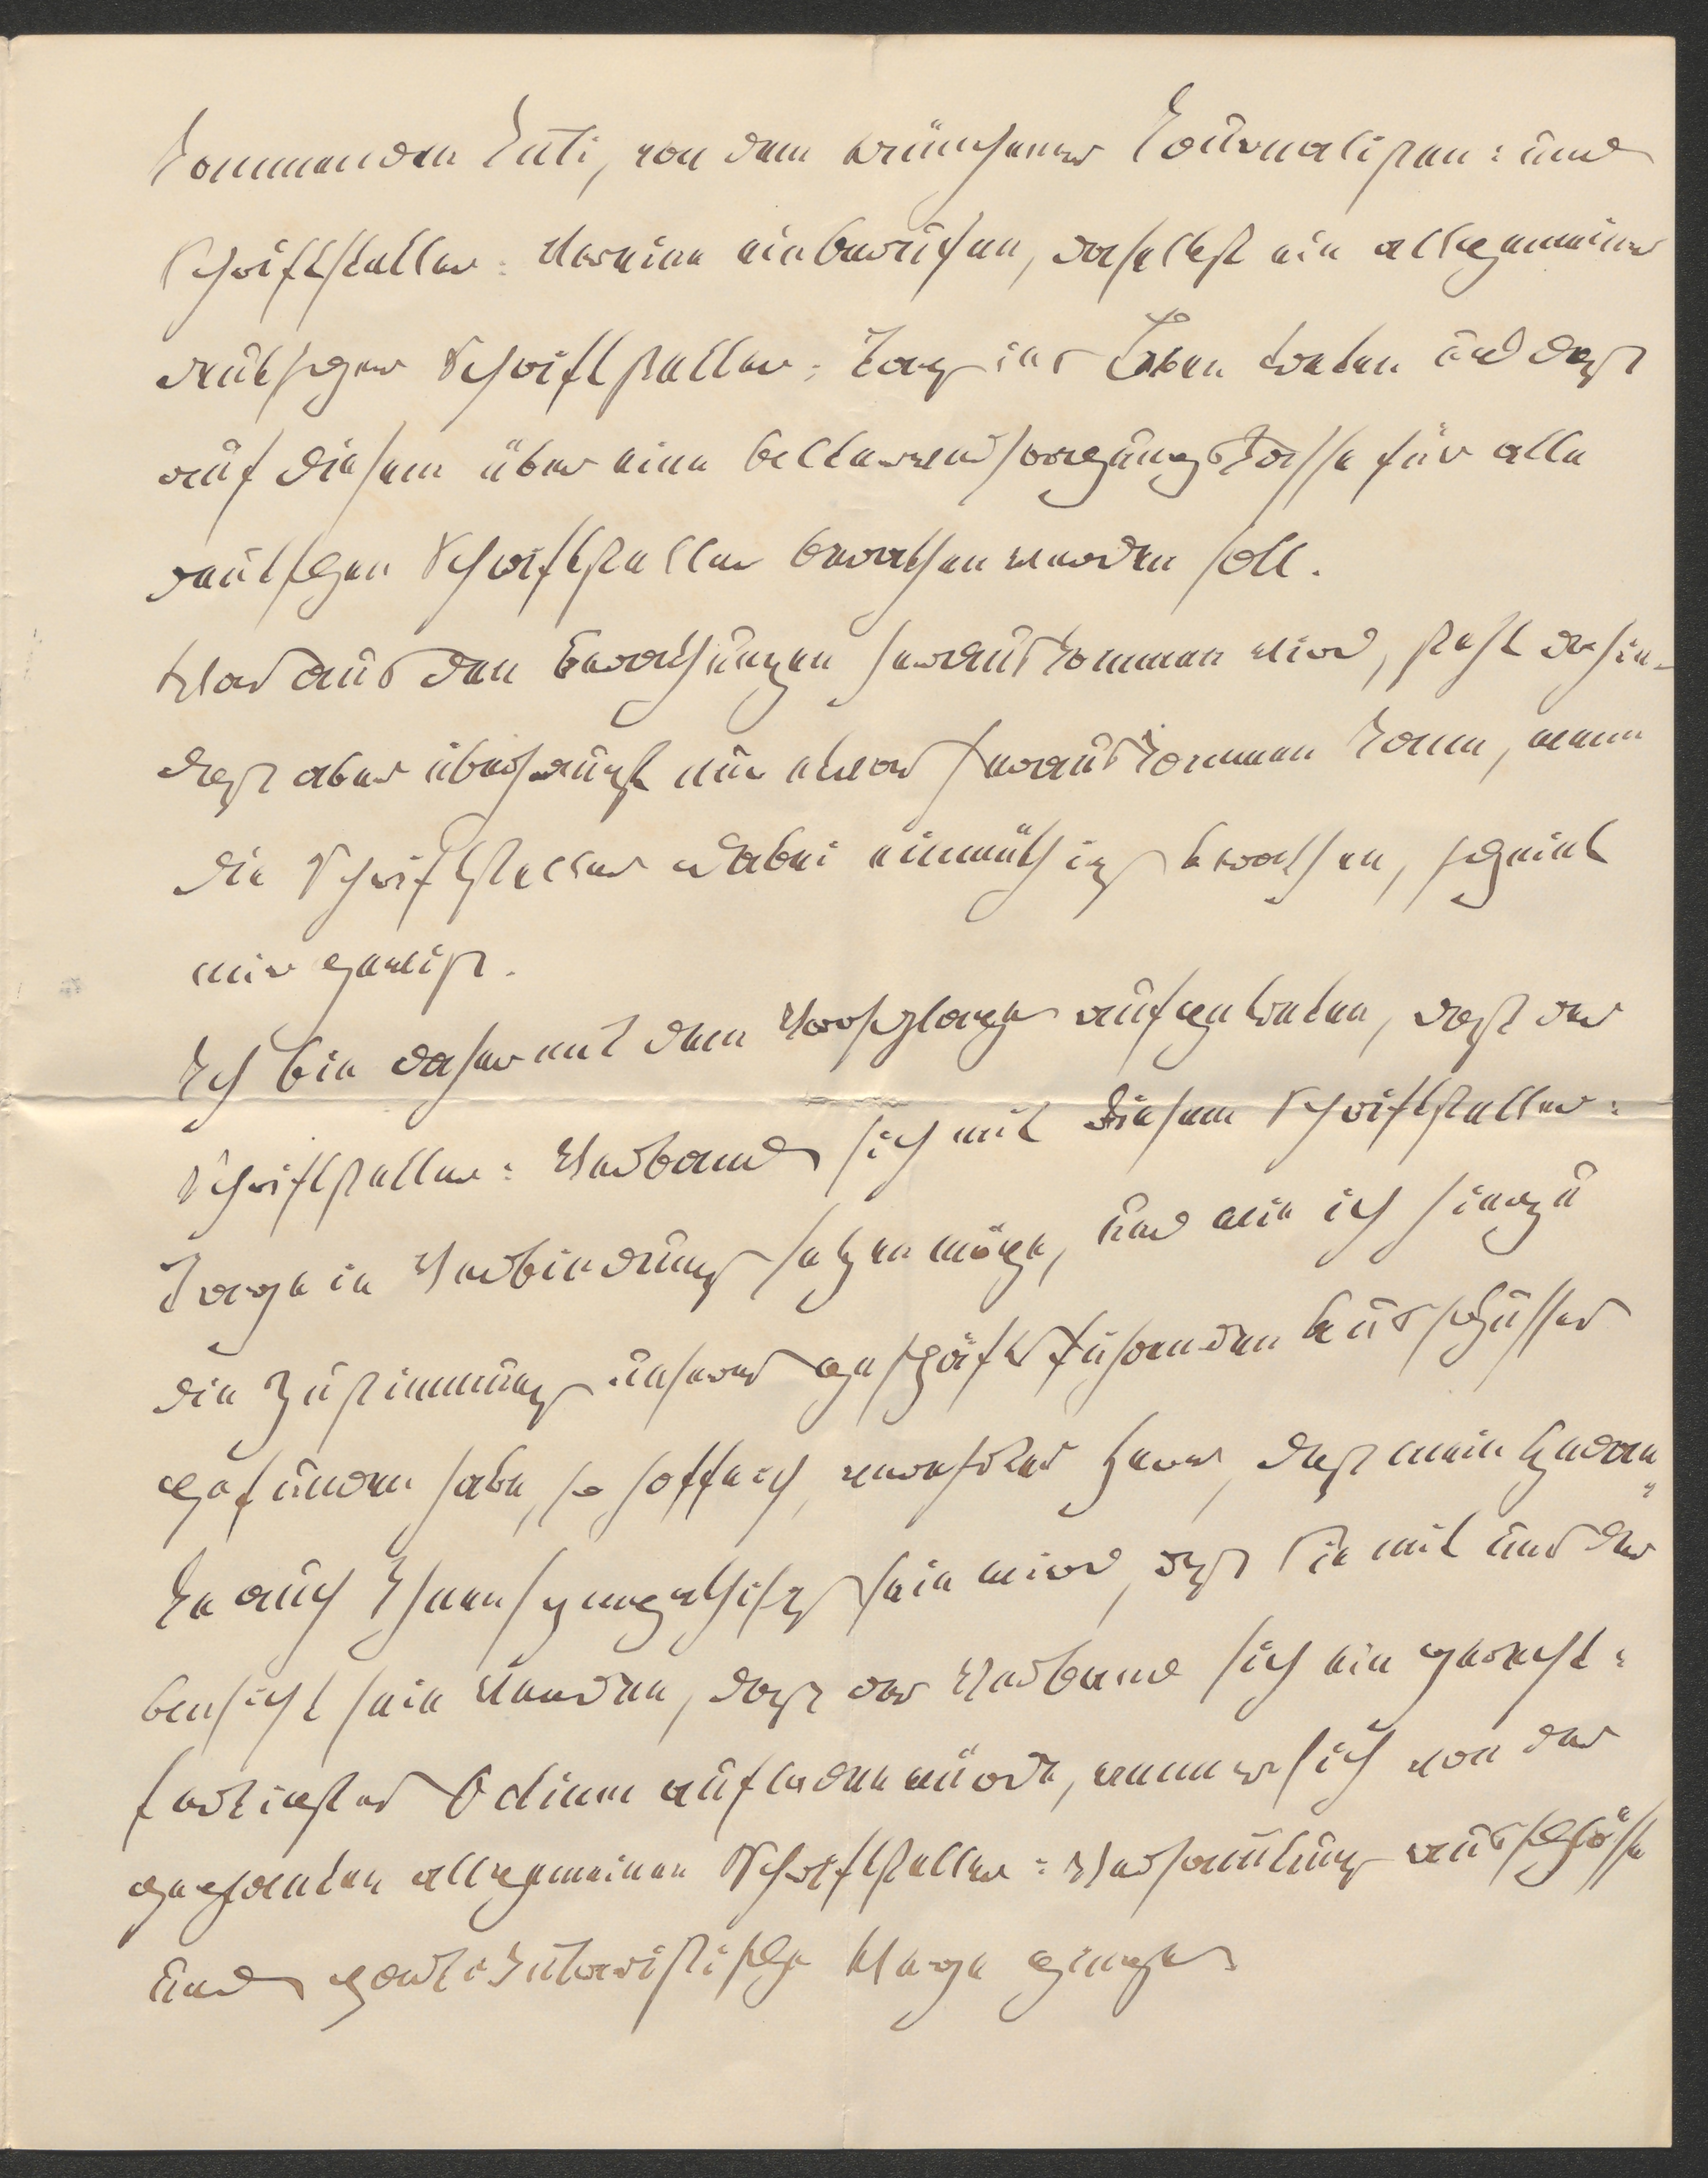 kommenden Juli, von dem Münchener Journalisten= und
Schriftsteller=Vereine einberufen, daselbst ein allgemeiner
deutscher Schriftsteller=Tag ins Leben treten und daß
auf diesem über eine Altersversorgungskasse für alle
deutschen Schriftsteller berathen werden soll.
Was aus den Berathungen herauskommen wird, steht dahin-
daß aber überhaupt nur etwas herauskommen kann, wenn
die Schriftsteller dabei einmüthig berathen, scheint
mir gewiß.
Ich bin daher mit dem Vorschlage aufgetreten, daß der
Schriftsteller=Verband sich mit diesem Schriftsteller=
Tage in Verbindung setzen möge, und wie ich hierzu
die Zustimmung unseres geschäftsführenden Ausschusses
gefunden habe, so hoffe ich, verehrter Herr, daß mein Gedan„
ke auch Ihnen sympathisch sein wird, daß Sie mit uns der
Ansicht sein werden, daß der Verband sich ein gerecht=
fertigtes Odium aufladen würde, wenn er sich von der
geplanten allgemeinen Schriftsteller=Versammlung ausschlösse
und partikularistische Wege ginge.